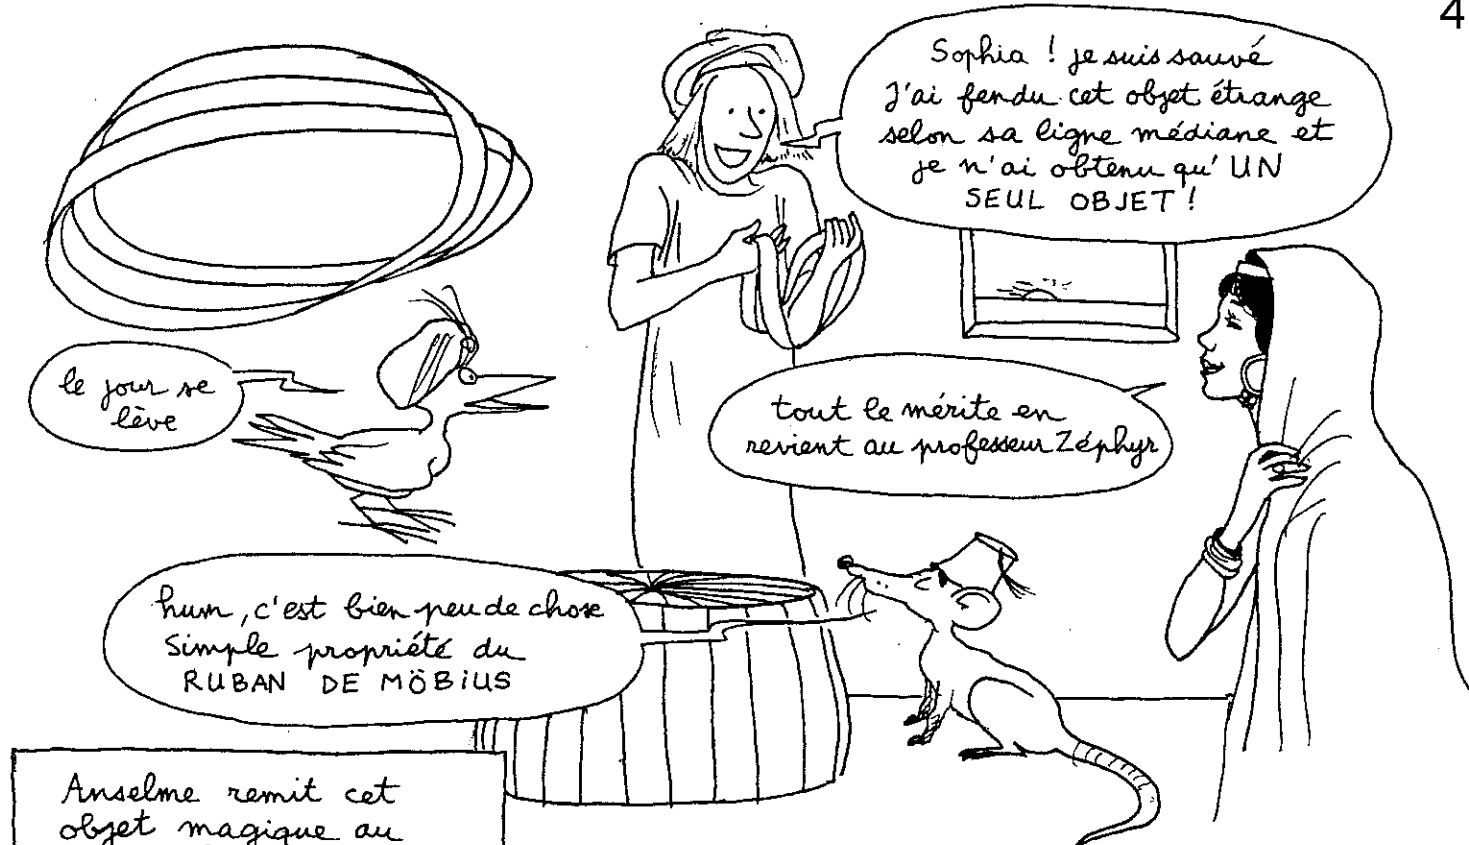 4
Sophia ! je suis sauvé
J'ai fendu cet objet étrange
selon sa ligne médiane et
je n'ai obtenu qu'UN
SEUL OBJET !
le jour se
lève
tout le mérite en
revient au professeur Zéphyr
hum, c'est bien peu de chose
Simple propriété du
RUBAN DE MÖBIUS
Anselme remit cet
objet magique au